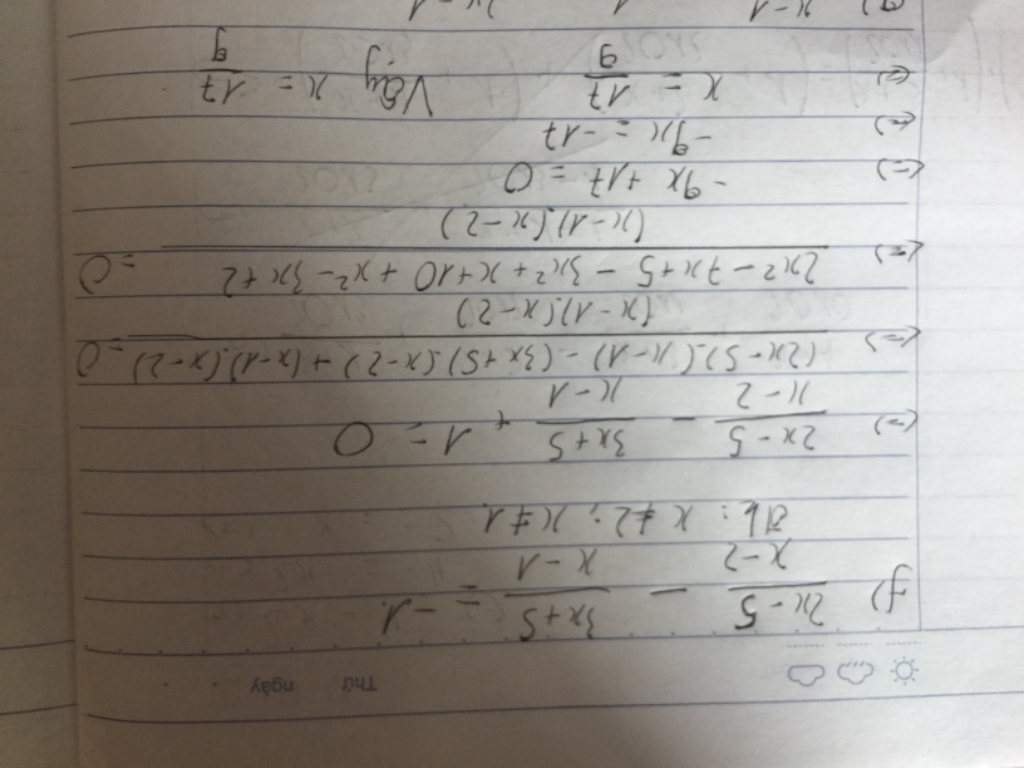 Thứ ngày
f) 2x-5/x-2 - 3x+5/x-1 = -1
Đk: x ≠ 2; x ≠ 1
(=) 2x-5/x-2 - 3x+5/x-1 + 1 = 0
(=) (2x-5).(x-1) - (3x+5).(x-2) + (x-1).(x-2)/(x-1).(x-2) = 0
(=) 2x²-7x+5 - 3x²+x+10 + x²-3x+2/(x-1).(x-2) = 0
(=) -9x+17 = 0
(=) -9x = -17
(=) x = 17/9 Vậy x = 17/9